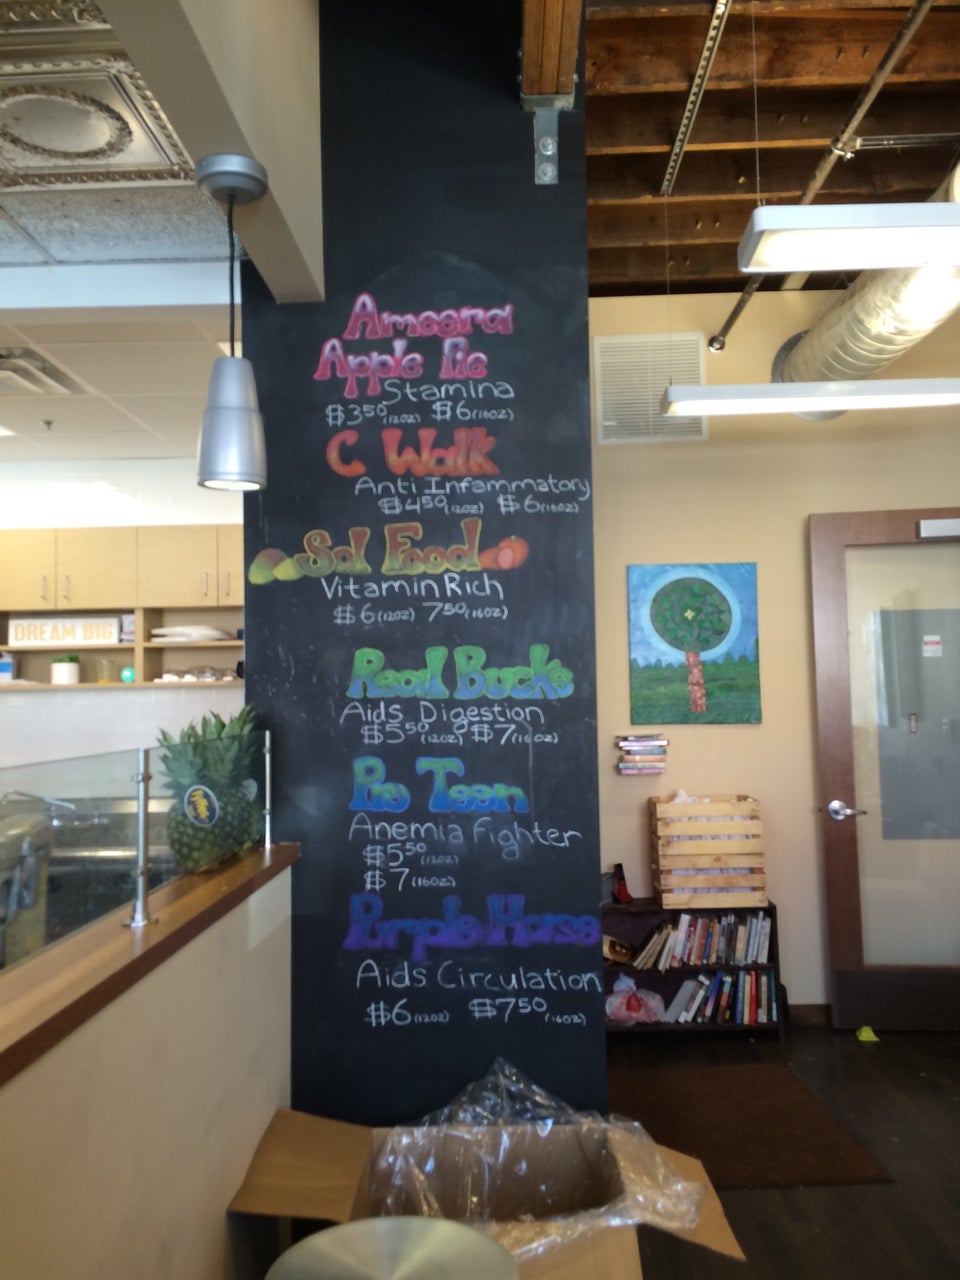 Ameera
Apple Pie
Stamina
$3.50 (12oz) $6 (16oz)
C Walk
Anti Infammatory
$4.50 (12oz) $6 (16oz)
Sol Food
Vitamin Rich
$6 (12oz) 7.50 (16oz)
Real Bucks
Aids Digestion
$5.50 (12oz) $7 (16oz)
Pie Teen
Anemia Fighter
$5.50 (12oz)
$7 (16oz)
Purple Horse
Aids Circulation
$6 (12oz) $7.50 (16oz)
DREAM BIG